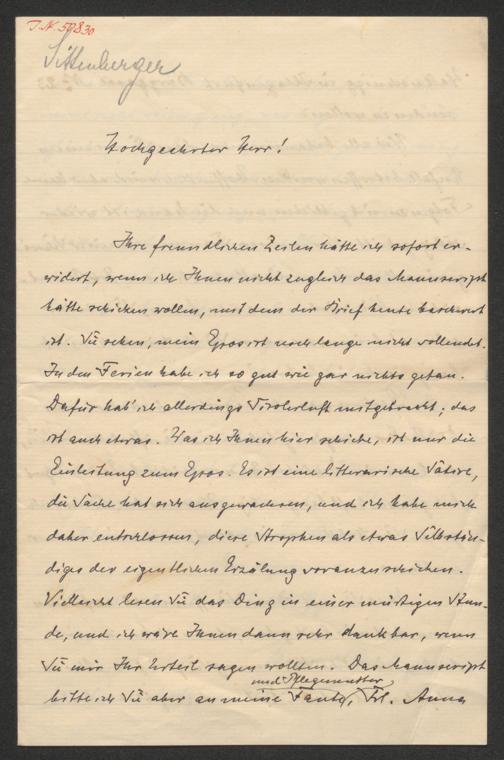 I.N. 59830
Sittenberger
Hochgeehrter Herr!
Ihre freundlichen Zeilen hätte ich sofort er-
widert, wenn ich Ihnen nicht zugleich das Manuscript
hätte schicken wollen, mit dem der Brief heute beschwert
ist. Sie sehen, mein Epos ist noch lange nicht vollendet.
In den Ferien habe ich so gut wie gar nichts getan.
Dafür hab' ich allerdings Tirolerluft mitgebracht; das
ist auch etwas. Was ich Ihnen hier schicke, ist nur die
Einleitung zum Epos. Es ist eine litterarische Satire,
die Sache hat sich ausgewachsen, und ich habe mich
daher entschlossen, diese Strophen als etwas Selbstän-
diges der eigentlichen Erzälung voranzuschicken.
Vielleicht lesen Sie das Ding in einer müssigen Stun-
de, und ich wäre Ihnen dann sehr dankbar, wenn
Sie mir Ihr Urteil sagen wollten. Das Manuscript
und Pflegemutter
bitte ich Sie aber an meine Tante, Frl. Anna